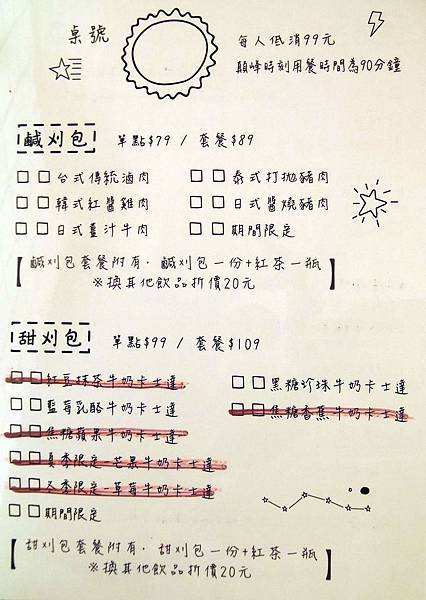 桌號
每人低消99元
顛峰時刻用餐時間為90分鐘
鹹刈包 單點$79 / 套餐$89
□ □ 台式傳統滷肉 □ □ 泰式打拋豬肉
□ □ 韓式紅醬雞肉 □ □ 日式醬燒豬肉
□ □ 日式薑汁牛肉 □ □ 期間限定
【鹹刈包套餐附有. 鹹刈包一份+紅茶一瓶
※換其他飲品折價20元】
甜刈包 單點$99 / 套餐$109
□ □ 紅豆抹茶牛奶卡士達 □ □ 黑糖珍珠牛奶卡士達
□ □ 藍莓乳酪牛奶卡士達 □ □ 焦糖香蕉牛奶卡士達
□ □ 焦糖蘋果牛奶卡士達
□ □ 夏季限定-芒果牛奶卡士達
□ □ 冬季限定-草莓牛奶卡士達
□ □ 期間限定
【甜刈包套餐附有. 甜刈包一份+紅茶一瓶
※換其他飲品折價20元】